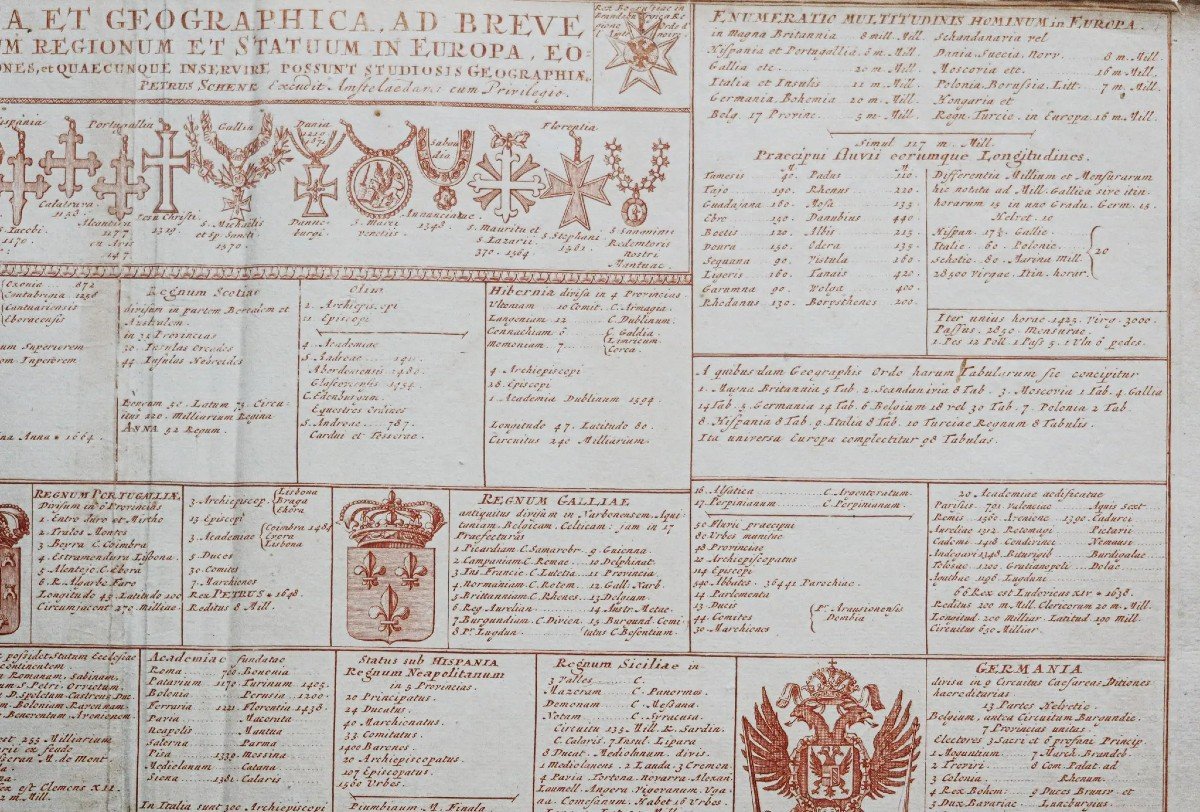 A, ET GEOGRAPHICA, AD BREVE
UM REGIONUM ET STATUUM IN EUROPA, EO-
ONES, et QUAECUNQUE INSERVIRE POSSUNT STUDIOSIS GEOGRAPHIÆ.
PETRUS SCHENK Excudit Amstelaedami cum Privilegio.
Hispania
Portugallia
Gallia
Dania
1219
1671
Sabau
dia
Florentia
S. Iacobi
1170
Calatrava
1158
Alcantara
1177
ou Avis
147
ces Christi
1319
S. Michaelis
et Sp. Sancti
1570
Danne-
burgi
S. Marci
venetiis
Annunciatae
1348
S. Mauritii et
S. Lazarii
370. 1564
S. Stephani
1561
S. Sanguinis
Redemtoris
nostri
Mantuae
ENUMERATIO MULTITUDINIS HOMINUM in EUROPA
in Magna Britannia 8 mill. Mill.
Hispania et Portugallia, 8 m. Mill
Gallia etc 20 m. Mill
Italia et Insulis 11 m. Mill
Germania Bohemia 20 m. Mill
Belg. 17 Provinc. 5 m. Mill
Schandanaria vel
Dania, Suecia, Norv. 8 m. Mill
Moscovia ett. 16 m Mill.
Polonia, Borussia, Litt. 7 m. Mill
Hungaria et
Regn. Turcic. in Europa 16 m Mill.
Simul 117 m. Mill.
Praecipui fluvii eorumque Longitudines.
Tamesis 60. Padus 120
Tajo 190. Rhenus 220
Guadajana 160. Mosa 135
Ebro 150. Danubius 440
Boetis 120. Albis 215
Doura 150. Odera 135
Sequana 90. Vistula 160
Ligeris 160. Tanais 420
Garumna 90. Wolga 400
Rhodanus 130. Borysthenes 200
Differentia Millium et Mensurarum
hic notata ad Mill. Gallica sive itin.
horarum 15 in uno Gradu. Germ. 15
Helvet. 10
Hispan. 17½. Gallic.
Italic. 60. Polonic.
Schotic. 80. Marina mill.
20
28500 Virgae. Itin. horar.
Iter unius horae 1425. Virg. 3000.
Passus 2850. Mensurae.
1. Pes 12 Poll. 1 Pass 5. 1 Vla 6 pedes.
A quibusdam Geographis Ordo harum Tabularum sic concipitur
1. Magna Britannia 5 Tab. 2. Scandinavia 8 Tab. 3. Moscovia 1 Tab. 4. Gallia
14 Tab. 5. Germania 14 Tab. 6. Belgium 18 vel 30 Tab. 7. Polonia 2 Tab.
8. Hispania 8 Tab. 9. Italia 8 Tab. 10. Turciae Regnum 8 Tabulis.
Ita universa Europa complectitur 98 Tabulas.
Oxonia 872
Cantabrgia 1256
Cantuariensis
Eboracensis
um Superiorem
om Inferiorem
na Anna * 1664.
Regnum Scotiae
divisum in partem Borealem et
Australem.
in 31 Provincias
30 Insulas Orcades
44 Insulas Hebreides
Boream 30. Latum 75. Circu-
itus 220. Milliarium Regina
ANNA 52 Regum.
Olim
2. Archiepiscopi
11 Episcopi
4. Academiae
S. Andreae 1411
Abordonensis 1480
Glascovensis 1454
C. Edenburgum
Equestres Ordines
S. Andreae 787.
Cardui et Tesserae.
Hibernia divisa in 4 Provincias
Ultoniam 10 Comit. C. Armagia
Langeniam 12 C. Dublinum.
Connachiam 6 C. Galdia
Momoniam 7 Limricum
Corca.
4 Archiepiscopi
28 Episcopi
1. Academia Dublinum 1594.
Longitudo 47. Latitudo 60.
Circuitus 240 Milliarium.
REGNUM PORTUGALLIÆ
Divisum in 6 Provincias
1. Entro Suro et Minho
2. Tralos Montes
3. Beyra C. Coimbra
4. Estramendura Lisbona
5. Alentejo C. Ebora
6. R. Algarbe Faro
Longitudo 45. Latitudo 100
Circumjacent 270 milliae.
3 Archiepiscop.
Lisbona
Braga
Ebora
13 Episcopi
3. Academiae
Coimbra 1484
Evora
Lisbona
5 Duces
30 Comites
7 Marchiones
Rex PETRUS * 1648.
Reditus 8 Mill.
REGNUM GALLIAE
antiquitus divisum in Narbonensem, Aqui-
taniam, Belgicam, Celticam: jam in 17
Praefecturas
1. Picardiam C. Samarobr.
2. Campaniam C. Romae
3. Ins. Francic C. Lutetia
4. Normaniam C. Rotom.
5. Brittanniam C. Rhenes
6. Reg. Aurelian
7. Burgundium C. Divion
8. Pr. Lugdun
9. Guienna
10. Delphinat
11. Provincia
12. Gall. Narb.
13. Belgium
14. Austr. Metae.
15. Burgund. Comi-
tatus C. Besentiam
16. Alsatica C. Argentoratum
17. Perpinianum C. Perpinianum
50. Fluvii praecipui
80. Urbes munitae
48. Provinciae
20. Archiepiscopatus
114 Episcopi
540. Abbates. 36441 Parochiae.
14 Parlementa
13. Ducis
44. Comites
30. Marchiones
Pr. Arausionensis
Dombia
20 Academiae aedificatae
Parisiis 791 Valenciae Aquis Sext.
Remis 1560 Aveniene 1390 Cadurci
Aureliae 1312 Rotomagi Pictarii
Cadome 1418 Condivinci Nemausi
Andegavi 1348 Bituriges Burdigalae
Tolosae 1200 Gratianopoli Dolae
Lugduni
66 Rex est Ludovicus XIV * 1638.
Reditus 200 m. Mill. Clericorum 20 m. Mill.
Longitud. 200 milliar. Latitud. 190 mill.
Circuitus 630 Milliar.
possidet Statum Ecclesiae
continentem.
Romanum, Sabinam,
um S. Petri, Orvietum,
D. Spoletum Castrense Duc.
m. Boloniam Ravennam
Benerentum Avenionem
est 255 Milliarium
arii ex feudo
seran M. de Mont
ex est Clemens XII.
Academiae fundatae
Roma 760 Bononia
Patavium 1179 Taurinum 1405.
Bolonia Perusia 1200.
Ferraria 1221 Florentia 1438.
Pavia Macerata
Neapolis Mantua
Salerna Parma
Pisa 1339 Messina
Mediolanum Catana
Siena 1381 Calaris
In Italia sunt 300 Archiepiscopi
Status sub HISPANIA
Regnum Neapolitanum
in 5 Provincias.
20 Principatus.
24 Ducatus
40 Marchionatus.
33. Comitatus.
1400 Barones
20 Archiepiscopatus
107 Episcopatus.
1500 Urbes.
Piumbium M. Finala
Regnum Siciliae in
3 Valles C.
Mazoram C. Panormos
Demonam C. Messana
Notam C. Syracusa.
Circuitu 135 Mill. R. Sardin.
C. Calaris 7 Insul. Lipara
8 Ducat. Mediolnum divis.
1 Mediolanens. 2 Lauda. 3 Cremon.
4 Pavia, Tortona, Novarra, Alexan.
Laumell. Angera, Vigevanum, Vga-
na. Comesanum. Habet 16 Urbes.
GERMANIA
divisa in 9 Circuitus Caesareas Ditiones
haereditarias
13 Partes Helvetic.
Belgium, antea Circuitum Burgundic.
7 Provincias unitas.
Electores 3 Sacri et 6 profani Princip.
1 Moguntium
2 Treviri
3 Colonia
4 Rex Bohem
5 Dux Bavariae
7 March. Brandeb.
8 Com. Palat. ad
Rhenum.
9 Duces Brunsv. et
Luneburgens.